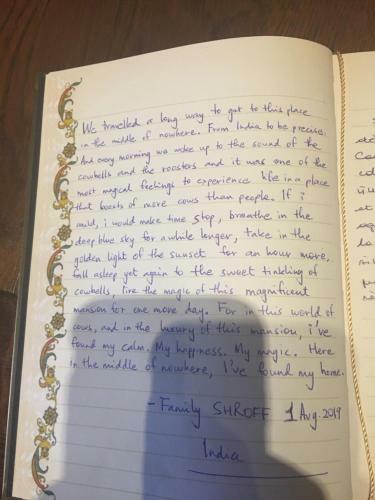 We travelled a long way to get to this place
in the middle of nowhere. From India to be precise.
And every morning we woke up to the sound of the
cowbells and the roosters and it was one of the
most magical feelings to experience life in a place
that boasts of more cows than people. If i
could, i would make time stop, breathe in the
deep blue sky for a while longer, take in the
golden light of the sunset for an hour more,
fall asleep yet again to the sweet tinkling of
cowbells, live the magic of this magnificent
mansion for one more day. For in this world of
cows, and in the luxury of this mansion, i've
found my calm. My happiness. My magic. Here
in the middle of nowhere, I've found my home.
- Family SHROFF 1 Aug. 2019
India